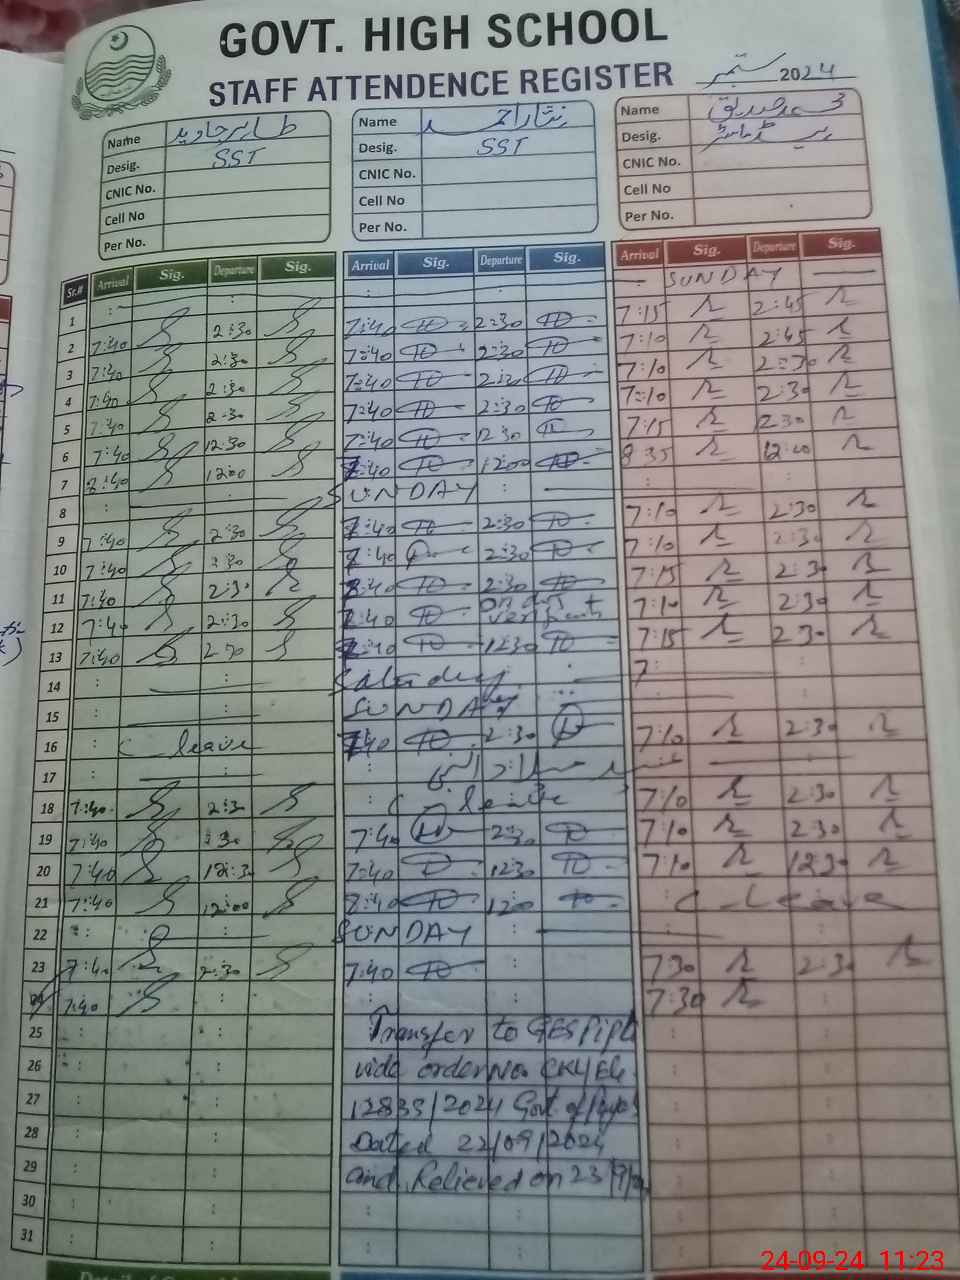 GOVT. HIGH SCHOOL
STAFF ATTENDENCE REGISTER ستمبر 2024
Name طاہر جاوید Name نثار احمد Name محمد صدیق
Desig. SST Desig. SST Desig. ہیڈ ماسٹر
CNIC No. CNIC No. CNIC No.
Cell No Cell No Cell No
Per No. Per No. Per No.
Sr.# Arrival Sig. Departure Sig. Arrival Sig. Departure Sig. Arrival Sig. Departure Sig.
1 SUNDAY
2 7:40 2:30 7:40 2:30 7:15 2:45
3 7:40 2:30 7:40 2:30 7:10 2:45
4 7:40 2:30 7:40 2:30 7:10 2:30
5 7:40 2:30 7:40 2:30 7:10 2:30
6 7:40 12:30 7:40 12:30 7:15 12:30
7 7:40 12:00 7:40 12:00 8:35 12:40
8 SUNDAY
9 7:40 2:30 7:40 2:30 7:10 2:30
10 7:40 2:30 7:40 2:30 7:10 2:30
11 7:40 2:30 7:40 2:30 7:15 2:30
12 7:40 2:30 7:40 on duty 7:10 2:30
13 7:40 7:40 12:30 7:15 2:30
14 Saturday 7:
15 SUNDAY
16 C leave 7:40 2:30 7:10 2:30
17 عید میلاد النبی
18 7:40 2:30 C leave 7:10 2:30
19 7:40 2:30 7:40 2:30 7:10 2:30
20 7:40 12:30 7:40 12:30 7:10 12:30
21 7:40 12:00 7:40 12:00 C leave
22 SUNDAY
23 7:40 2:30 7:40 7:30 2:30
24 7:40 7:30
25 Transfer to GES
26 vide order No.
27 12833/2024 Govt of
28 Dated 22/09/2024
29 and Relieved on 23/9/24
30
31
24-09-24 11:23